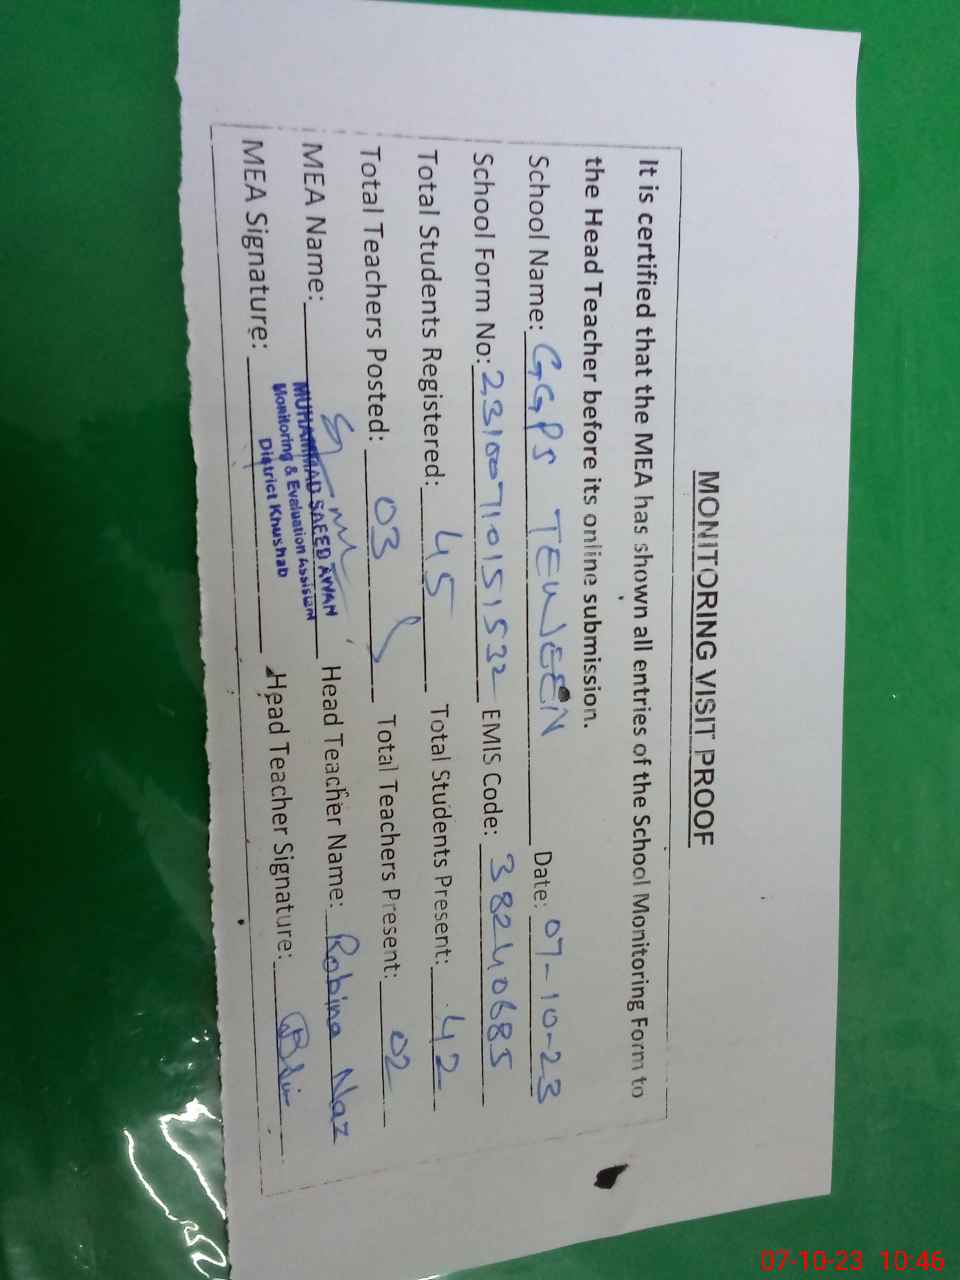 MONITORING VISIT PROOF
It is certified that the MEA has shown all entries of the School Monitoring Form to
the Head Teacher before its online submission.
School Name: GGPS TEWEEN Date: 07-10-23
School Form No: 23100710151532 EMIS Code: 38240685
Total Students Registered: 45 Total Students Present: 42
Total Teachers Posted: 03 Total Teachers Present: 02
MEA Name: Head Teacher Name: Robina Naz
MUHAMMAD SAEED AWAN
Monitoring & Evaluation Assistant
District Khushab
MEA Signature: Head Teacher Signature:
07-10-23 10:46